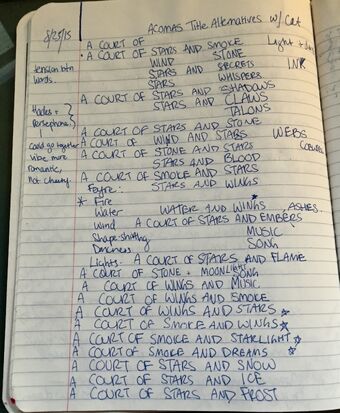 8/25/15 ACOMAS Title Alternatives w/ Cat
A COURT OF STARS AND SMOKE Light +
• A COURT OF WIND STONE
tension btn STARS AND SECRETS INK
words. STARS WHISPERS
A COURT OF STARS AND SHADOWS
STARS AND CLAWS
Hades + TALONS
Persephone
A COURT OF STARS AND STONE
A COURT OF WIND AND STARS WEBS
could go together A COURT OF STONE AND STARS
Vibe more STARS AND BLOOD
romantic, A COURT OF SMOKE AND STARS
not Feyre: STARS AND WINGS
* Fire
Water WATER AND WINGS ASHES
Wind A COURT OF STARS AND EMBERS
Shape-shifting MUSIC
Darkness SONG
Lights: A COURT OF STARS AND FLAME
A COURT OF STONE + MOONLIGHT SONG
A COURT OF WINGS AND MUSIC
A COURT OF WINGS AND SMOKE
A COURT OF WINGS AND STARS ☆
A COURT OF SMOKE AND WINGS ☆
A COURT OF SMOKE AND STARLIGHT ☆
A COURT OF SMOKE AND DREAMS ☆
A COURT OF STARS AND SNOW
A COURT OF STARS AND ICE
A COURT OF STARS AND FROST